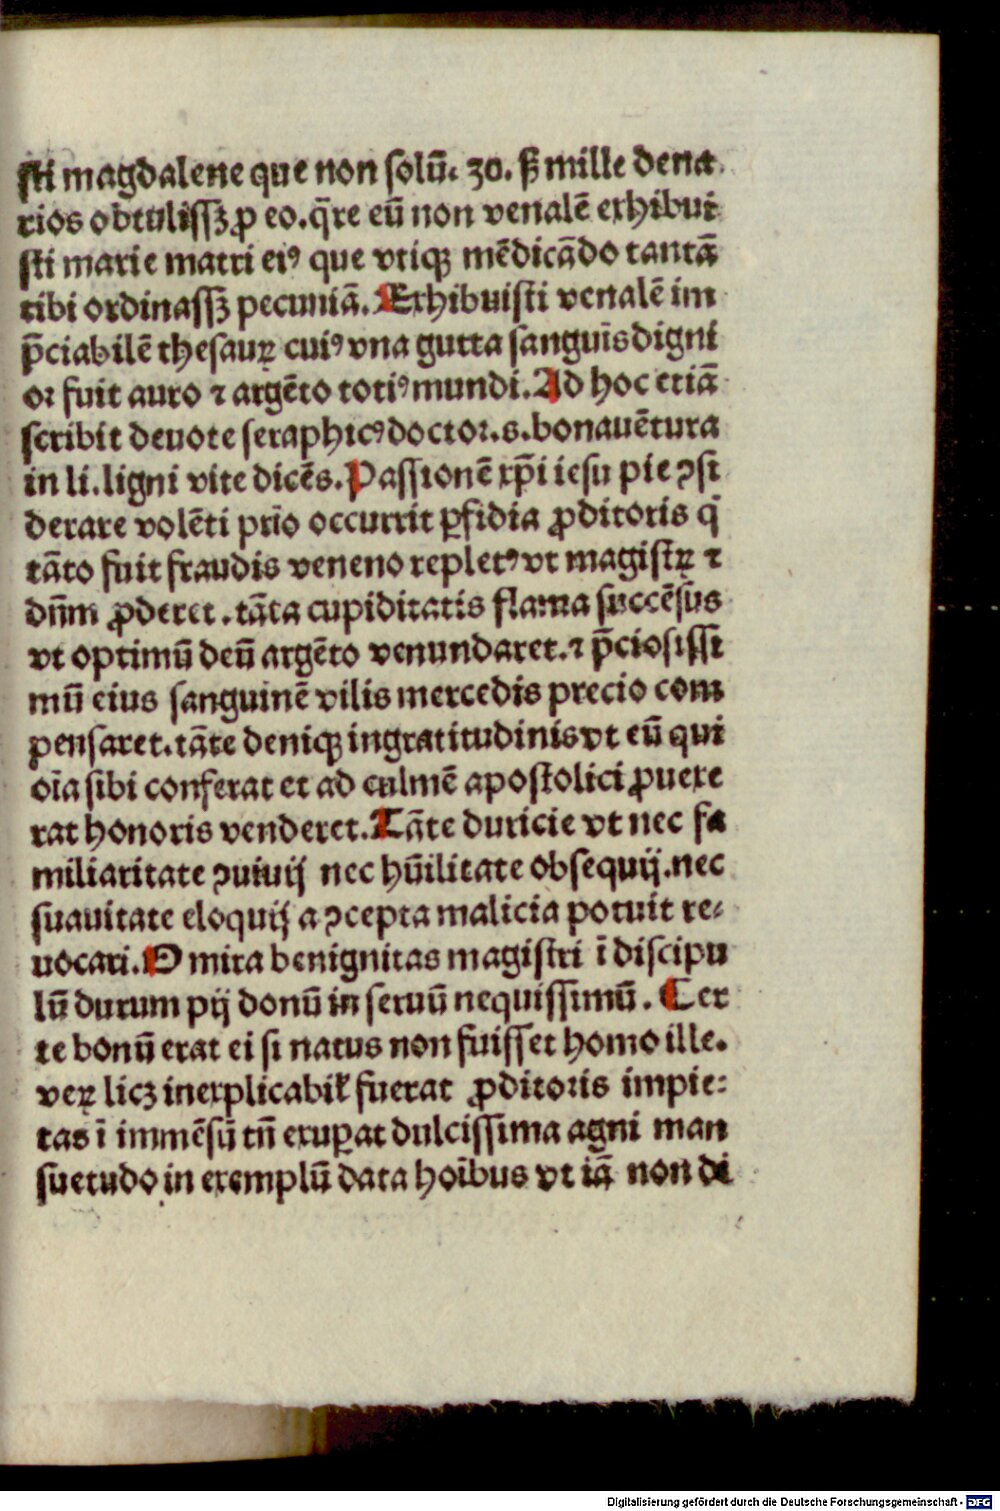 sti magdalene que non solū. 30. sꝫ mille dena
rios obtulissꝫ ꝓ eo. q̄re eū non venalē exhibui
sti marie matri eiꝰ que vtiqꝫ mēdicādo tantā
tibi ordinassꝫ pecuniā. Exhibuisti venalē im
p̄ciabilē thesauꝝ cuiꝰ vna gutta sanguīs digni
or fuit auro ⁊ argēto totiꝰ mundi. Ad hoc etiā
scribit deuote seraphicꝰ doctor. s. bonauētura
in li. ligni vite dicēs. Passionē xp̄i iesu pie ꝯsi
derare volēti prīo occurrit ꝑfidia ꝓditoris q̄
tāto fuit fraudis veneno repletꝰ vt magistꝝ ⁊
dn̄m ꝓderet. tāta cupiditatis flama succēsus
vt optimū deū argēto venundaret. ⁊ p̄ciosissi
mū eius sanguinē vilis mercedis precio com
pensaret. tāte deniqꝫ ingratitudinis vt eū qui
oīa sibi conferat et ad culmē apostolici ꝓuexe
rat honoris venderet. Tāte duricie vt nec fa
miliaritate ꝯuiuij nec hūilitate obsequij. nec
suauitate eloquij a ꝯcepta malicia potuit re-
uocari. O mira benignitas magistri ī discipu
lū durum pij donū in seruū nequissimū. Cer
te bonū erat ei si natus non fuisset homo ille.
veꝝ licꝫ inexplicabiꝉ fuerat ꝓditoris impie-
tas ī immēsū tn̄ exuꝑat dulcissima agni man
suetudo in exemplū data hoībus vt iā non di
Digitalisierung gefördert durch die Deutsche Forschungsgemeinschaft - DFG